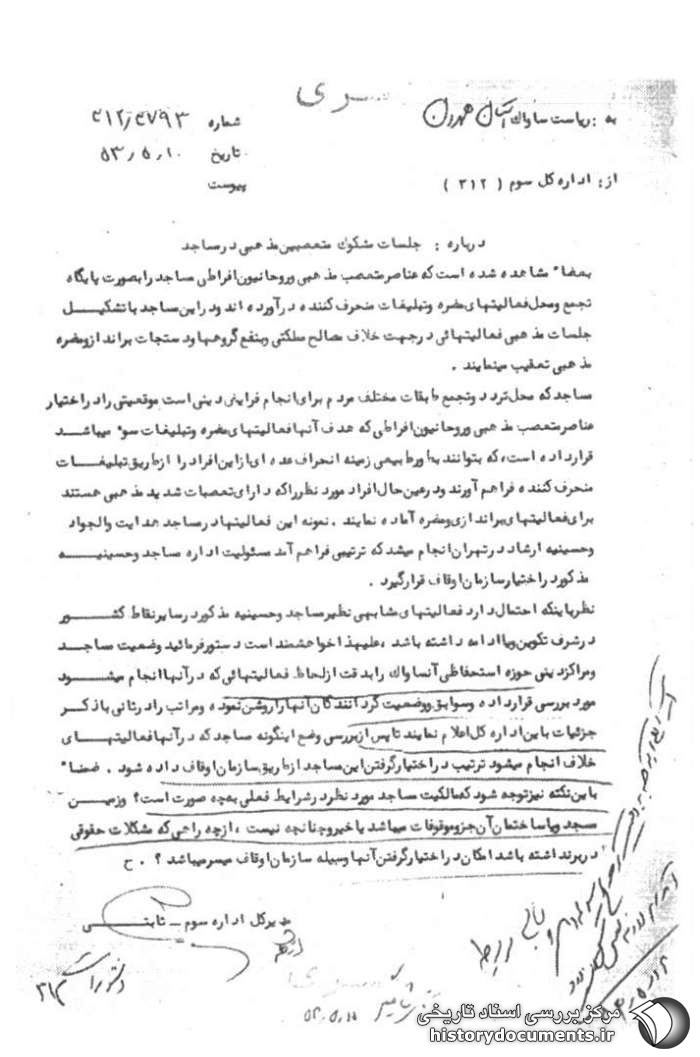 سری
به : ریاست ساواک استان همدان
شماره ۳۱۲/۴۷۹۳
تاریخ ۵۳/۵/۱۰
از : اداره کل سوم ( ۳۱۲ )
پیوست
درباره : جلسات مشکوک متعصبین مذهبی در مساجد
بعضاً مشاهده شده است که عناصر متعصب مذهبی و روحانیون افراطی مساجد را بصورت پایگاه
تجمع و محل فعالیتهای مضره و تبلیغات منحرف کننده در آورده اند و در این مساجد با تشکیل
جلسات مذهبی فعالیتهائی در جهت خلاف مصالح مملکتی و بنفع گروهها و دستجات برانداز و مضره
مذهبی تعقیب مینمایند .
مساجد که محل تردد و تجمع طبقات مختلف مردم برای انجام فرایض دینی است موقعیتی را در اختیار
عناصر متعصب مذهبی و روحانیون افراطی که هدف آنها فعالیتهای مضره و تبلیغات سوء میباشد
قرار داده است، که بتوانند بطور طبیعی زمینه انحراف عده ای از این افراد را از طریق تبلیغات
منحرف کننده فراهم آورند و در عین حال افراد مورد نظر را که دارای تعصبات شدید مذهبی هستند
برای فعالیتهای براندازی و مضره آماده نمایند . نمونه این فعالیتها در مساجد هدایت و الجواد
و حسینیه ارشاد در تهران انجام میشد که ترتیبی فراهم آمد مسئولیت اداره مساجد و حسینیه
مذکور در اختیار سازمان اوقاف قرار گیرد .
نظر باینکه احتمال دارد فعالیتهای مشابهی نظیر مساجد و حسینیه مذکور در سایر نقاط کشور
در شرف تکوین و یا ادامه داشته باشد ، علیهذا خواهشمند است دستور فرمائید وضعیت مساجد
و مراکز دینی حوزه استحفاظی آنساواک را بدقت از لحاظ فعالیتهائی که در آنها انجام میشود
مورد بررسی قرار داده و سوابق و وضعیت گردانندگان آنها را روشن نموده و مراتب را در ثانی با ذکر
جزئیات باین اداره کل اعلام نمایند تا پس از بررسی وضع اینگونه مساجد که در آنها فعالیتهای
خلاف انجام میشود ترتیب در اختیار گرفتن این مساجد از طریق سازمان اوقاف داده شود . ضمناً
باین نکته نیز توجه شود که مالکیت مساجد مورد نظر در شرایط فعلی به چه صورت است؟ و زمین
مسجد و یا ساختمان آن جزو موقوفات میباشد یا خیر و چنانچه نیست ، از چه راهی که مشکلات حقوقی
در بر نداشته باشد امکان در اختیار گرفتن آنها وسیله سازمان اوقاف میسر میباشد ؟ . ح
مدیر کل اداره سوم _ ثابتی
از طرف
۳۱۲
سری
مرکز بررسی اسناد تاریخی
historydocuments.ir